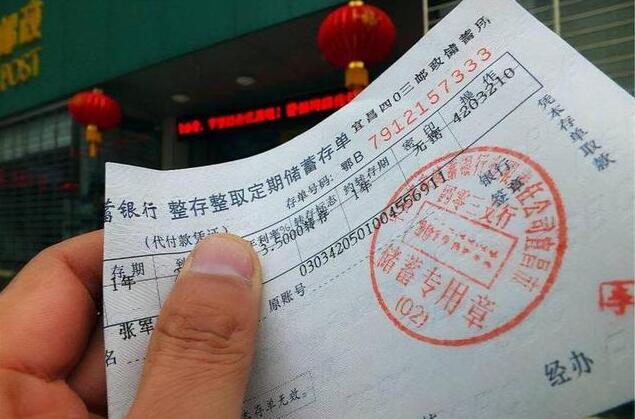 邮政
POST
宜昌四0三邮政储蓄所
蓄银行 整存整取定期储蓄存单
存单号码: 鄂B 7912157333
(代付款凭证)
存期
利率%
转存标志
约转存期
密印
操作
1年
3.5000
转存
1年
无密
4203210
030342050100455691​1
原账号
张军
名
银行
签章
凭本存单取款
储蓄专用章
(02)
经办
本存单无效。